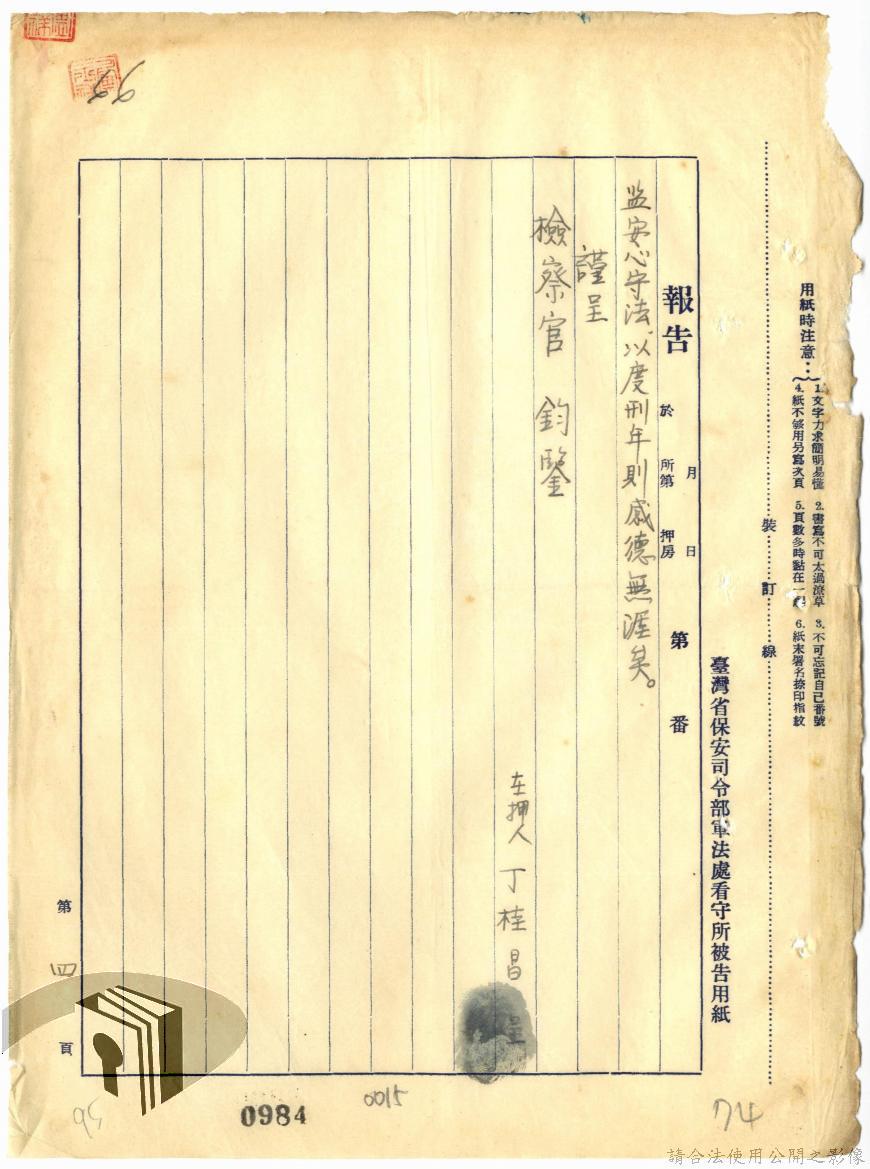 66
用紙時注意：
1.文字力求簡明易懂 2.書寫不可太過潦草 3.不可忘記自己番號
4.紙不够用另寫次頁 5.頁數多時點在一起 6.紙末署名捺印指紋
裝訂線
臺灣省保安司令部軍法處看守所被告用紙
報告 於 月 日 所第 押房 第 番
监安心守法，以度刑年則感德無涯矣。
謹呈
檢察官 鈞鑒
在押人 丁桂昌 呈
第四頁
0984
0015
74
請合法使用公開之影像